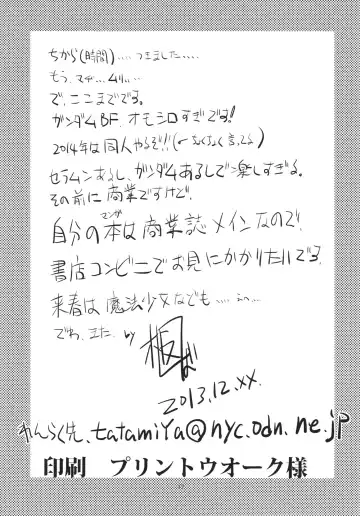 ちから(時間)‥‥つきました‥‥
もう、マヂ‥‥ムリ‥‥
で、ここまでです。
ガンダムBF、オモシロすぎです!
2014年は同人やるぞ!!
セラムンあるし、ガンダムあるしで楽しすぎる。
その前に商業ですけど。
マンガ
自分の本は商業誌メインなので
書店コンビニでお見にかかりたいです。
来春は魔法少女なども‥‥
でわ、また by
2013.12.xx.
れんらく先、tatamiya@nyc.odn.ne.jp
印刷 プリントウオーク様